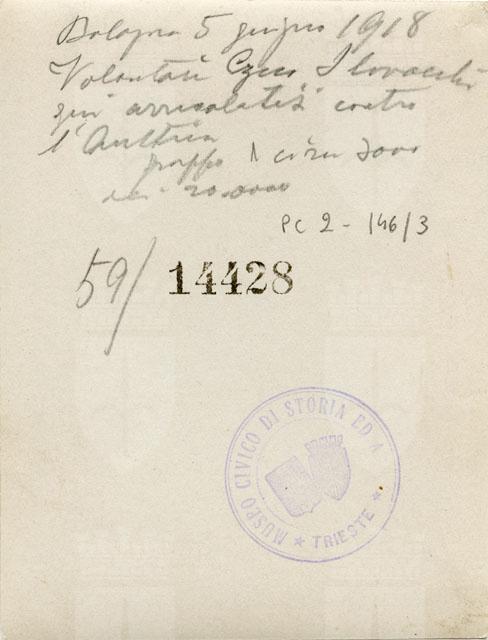 Bologna 5 giugno 1918
Volontari Czeco Slovacchi
qui arruolatisi contro
l'Austria
gruppo circa 3000
dei 20.000
PC 2 - 146/3
59/ 14428
MUSEO CIVICO DI STORIA ED A
★ TRIESTE ★